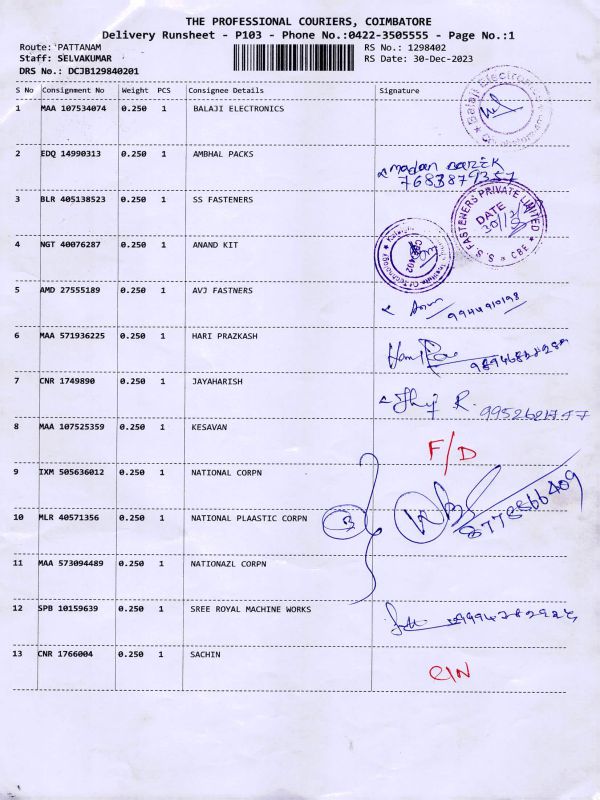 THE PROFESSIONAL COURIERS, COIMBATORE
Delivery Runsheet - P103 - Phone No.:0422-3505555 - Page No.:1
Route: PATTANAM RS No.: 1298402
Staff: SELVAKUMAR RS Date: 30-Dec-2023
DRS No.: DCJB129840201
S No Consignment No Weight PCS Consignee Details Signature
1 MAA 107534074 0.250 1 BALAJI ELECTRONICS
Balaji Electronics
2 EDQ 14990313 0.250 1 AMBHAL PACKS
madan
3 BLR 405138523 0.250 1 SS FASTENERS
S.S FASTENERS PRIVATE LIMITED
DATE
CBE
4 NGT 40076287 0.250 1 ANAND KIT
Institute Of Technology
5 AMD 27555189 0.250 1 AVJ FASTNERS
6 MAA 571936225 0.250 1 HARI PRAZKASH
7 CNR 1749890 0.250 1 JAYAHARISH
R.
8 MAA 107525359 0.250 1 KESAVAN
F/D
9 IXM 505636012 0.250 1 NATIONAL CORPN
10 MLR 40571356 0.250 1 NATIONAL PLAASTIC CORPN
3 8778566409
11 MAA 573094489 0.250 1 NATIONAZL CORPN
12 SPB 10159639 0.250 1 SREE ROYAL MACHINE WORKS
13 CNR 1766004 0.250 1 SACHIN
CIN